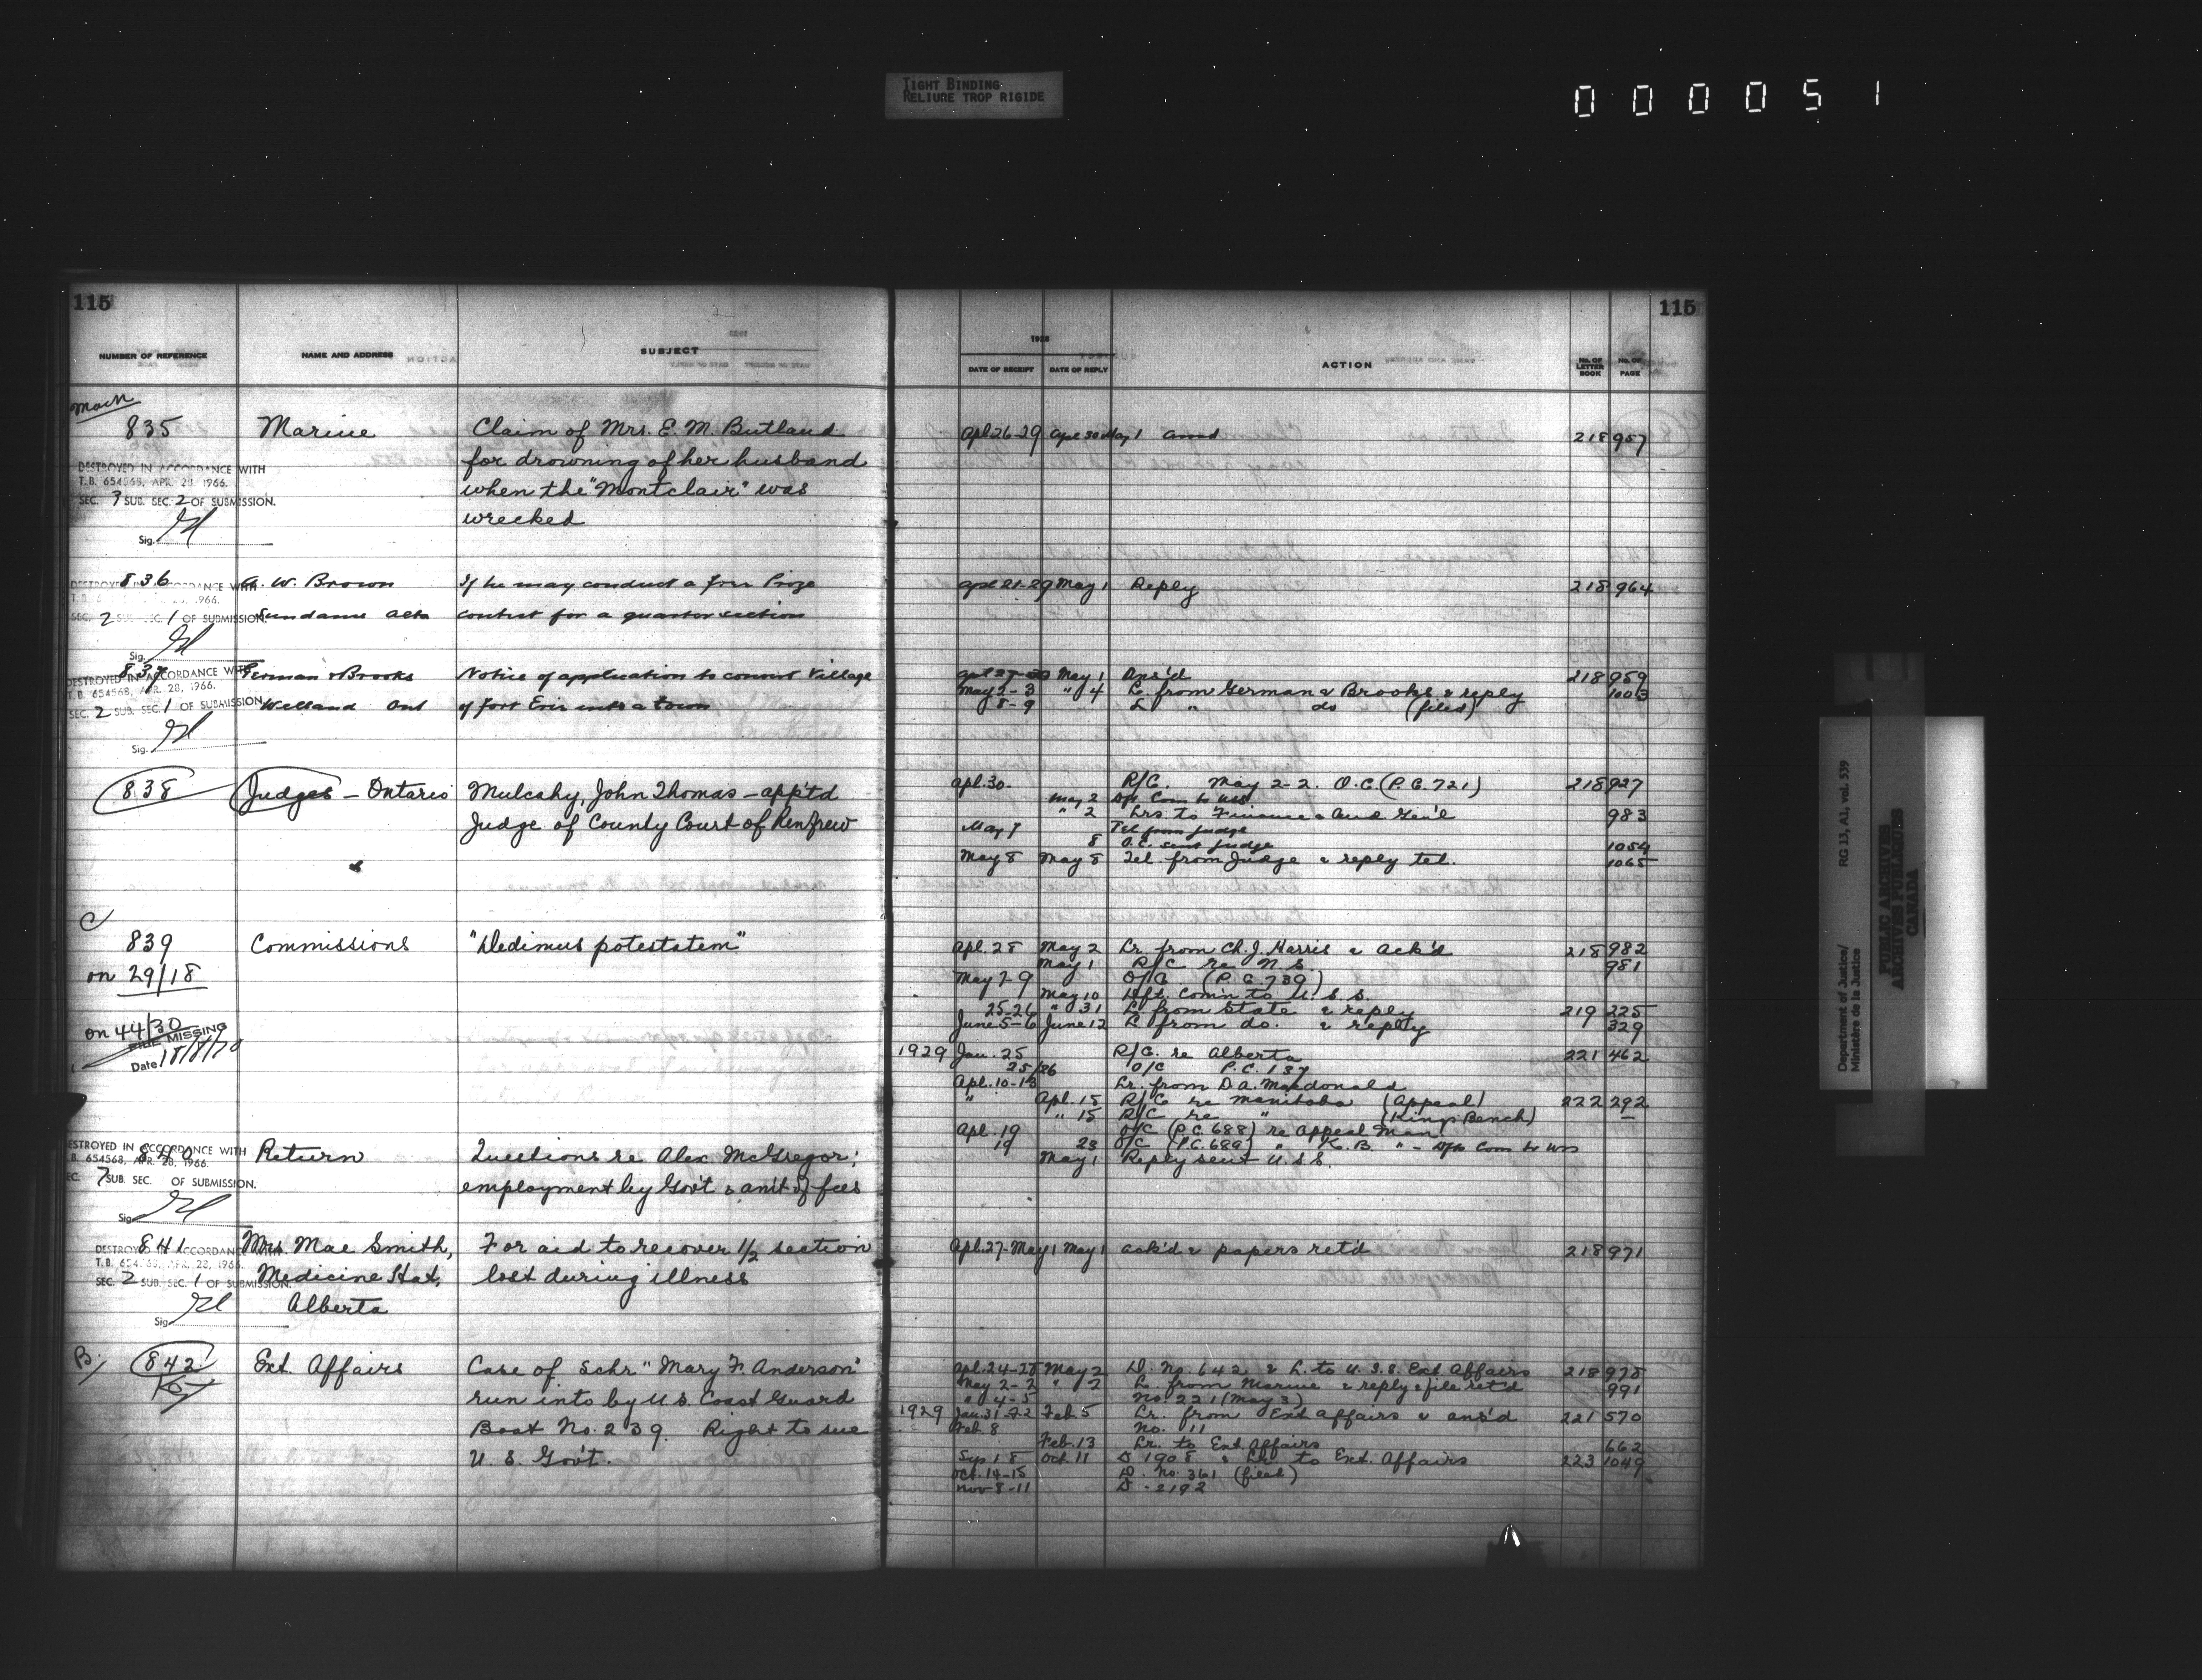 TIGHT BINDING
RELIURE TROP RIGIDE
000051
115
NUMBER OF REFERENCE NAME AND ADDRESS SUBJECT
835 Marine Claim of Mrs. E. M. Butland
for drowning of her husband
when the "Montclair" was
wrecked
DESTROYED IN ACCORDANCE WITH
T.B. 654568, APR. 28, 1966.
SEC. 3 SUB. SEC. 2 OF SUBMISSION.
Sig.
836 W. Brown If he may conduct a Prize
contest for a quarter section
DESTROYED IN ACCORDANCE WITH
1966.
SEC. 2 SUB. SEC. 1 OF SUBMISSION.
Sig.
837 German & Brooks Notice of application to convert Village
Welland Ont of Fort Erie into a town
DESTROYED IN ACCORDANCE WITH
T.B. 654568, APR. 28, 1966.
SEC. 2 SUB. SEC. 1 OF SUBMISSION.
Sig.
838 Judges - Ontario Mulcahy, John Thomas - app'td
Judge of County Court of Renfrew
C
839 Commissions "Dedimus potestatem"
on 29/18
on 44/30
FILE MISSING
Date 18/8/70
840 Return Questions re Alex McGregor;
employment by Gov't & am't of fees
DESTROYED IN ACCORDANCE WITH
T.B. 654568, APR. 28, 1966.
SEC. 7 SUB. SEC. OF SUBMISSION.
Sig.
841 Mrs. Mae Smith, For aid to recover 1/2 section
Medicine Hat, lost during illness
Alberta
DESTROYED IN ACCORDANCE WITH
T.B. 654568, APR. 28, 1966.
SEC. 2 SUB. SEC. 1 OF SUBMISSION.
Sig.
B/ 842 Ext. Affairs Case of Schr "Mary F. Anderson"
run into by U.S. Coast Guard
Boat No. 239. Right to sue
U. S. Gov't.
115
1928
DATE OF RECEIPT DATE OF REPLY ACTION NO. OF LETTER BOOK NO. OF PAGE
Apl 26-29 Apl 30 May 1 218 957
May 1 Reply 218 964
May 1 Ans'd 218 959
May 2-3 " 4 L. from German & Brooks & reply 1003
8-9 L " do (filed)
Apl. 30. R/C. May 2-2. O.C. (P.C. 721) 218 927
May 2 Dft. Com to USS.
" 2 Lrs. to Finance & Aud. Gen'l 983
May 7 Tel from Judge
8 O.C. sent Judge 1054
May 8 May 8 Tel. from Judge & reply tel. 1065
Apl. 28 May 2 Lr. from Ch. J. Harris & Ack'd 218 982
May 1 R/C re N.S. 981
May 7-9 O/C (P.C. 739)
May 10 Dft. Com'n to U.S.S.
25-26 " 31 L. from State & reply 219 225
June 5-6 June 12 L. from do. & reply 329
1929 Jan. 25 R/C. re Alberta 221 462
25/26 O/C P.C. 137
Apl. 10-13 Lr. from D.A. Macdonald
" Apl. 15 R/C re Manitoba (Appeal) 222 292
" 15 R/C re " (King's Bench) -
Apl. 19 O/C (P.C. 688) re Appeal Man.
19 23 O/C (P.C. 689) " K.B. " - Dft Com to USS
May 1 Reply sent U.S.S.
Apl. 27-May 1 May 1 ack'd & papers ret'd 218 971
Apl. 24-25 May 2 D. No. 642 & L. to U.S.S. Ext Affairs 218 975
May 2-2 " 2 L. from Marine & reply & file ret'd 991
" 4-5 No. 221 (May 3)
1929 Jan. 31-F2 Feb. 5 Lr. from Ext Affairs & ans'd 221 570
Feb. 8 No. 11
Feb. 13 Lr. to Ext Affairs 662
Sep 18 Oct. 11 D 1908 & Lr. to Ext. Affairs 223 1049
Oct. 14-15 D. No. 361 (filed)
Nov 8-11 D - 2192
Department of Justice/ RG 13, A1, vol. 539
Ministère de la Justice
PUBLIC ARCHIVES
ARCHIVES PUBLIQUES
CANADA